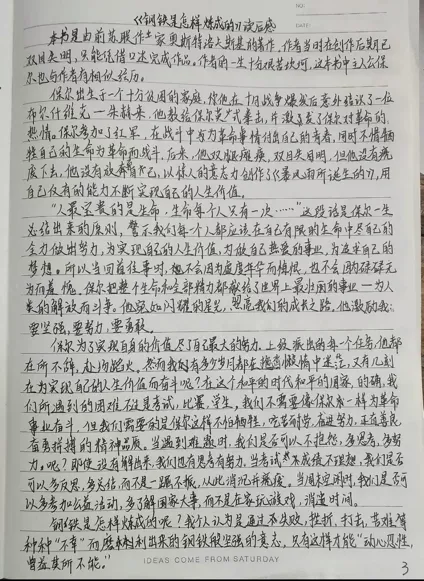 NO:
DATE:
《钢铁是怎样炼成的》读后感
本书是由前苏联作家奥斯特洛夫斯基的著作,作者当时在创作后期已
双目失明,只能凭借口述完成作品。作者的一生十分艰苦坎坷,这本书中主人公保
尔也与作者有相似经历。
保尔出生于一个十分贫困的家庭,当他在十月战争爆发后意外结识了一位
布尔什维克—朱赫来,他教给保尔英式拳击,并激发了保尔对革命的
热情。保尔参加了红军,在战斗中与为革命事情付出自己的青春,同时不惜牺
牲自己的生命为革命而战斗,后来,他双腿瘫痪,双目失明,但他没有颓
废下去,他没有放弃自己,以惊人的意志力创作了《暴风雨所诞生的》,用
自己仅有的能力不断实现自己的人生价值。
“人最宝贵的是生命,生命每个人只有一次……”这段话是保尔一生
总结出来的原则,警示我们每个人都应该在自己有限的生命中尽自己的
全力做出努力,为实现自己的人生价值,为做自己热爱的事业,为追求自己的
梦想。所以当回首往事时,他不会因为虚度年华而悔恨,也不会因为碌碌无
为而羞愧,保尔把整个生命和全部精力都献给了世界上最壮丽的事业—为人
类的解放而斗争。他宛如闪耀的星光,照亮我们的成长之路。他激励我:
要坚强,要努力,要勇敢。
保尔为了实现自身的价值尽了自己最大的努力,上级派出的每个任务,他都
在所不辞,赴汤蹈火,然而我们有多少岁月都在拖沓懒惰中迷茫,又有几刻
在为实现自己的人生价值而奋斗呢?在这个和平的时代和平的国家,的确,我
们所遇到的困难不过是考试,比赛,学生,我们不需要像保尔那一样为革命
事业奋斗,但我们需要的是保尔这样不怕牺牲,吃苦耐劳,奋进努力,正直善良,
奋勇拼搏的精神品质。当遇到难题时,我们是否可以不抱怨,多思考,多努
力呢?即使没有解出来,我们也有思考有努力,当考试成绩不理想,我们是否
可以多反思,多总结,而不是一蹶不振,从此消沉并颓废。当周末空闲时,我们是否可
以多参加公益活动,多了解国家大事,而不是在家玩游戏,消遣时间。
钢铁是怎样炼成的呢?我个人认为是通过不失败,挫折,打击,苦难等
种种“不幸”而磨练出来的钢铁般坚强的意志,只有这样才能“动心忍性,
曾益其所不能。”
IDEAS COME FROM SATURDAY
3